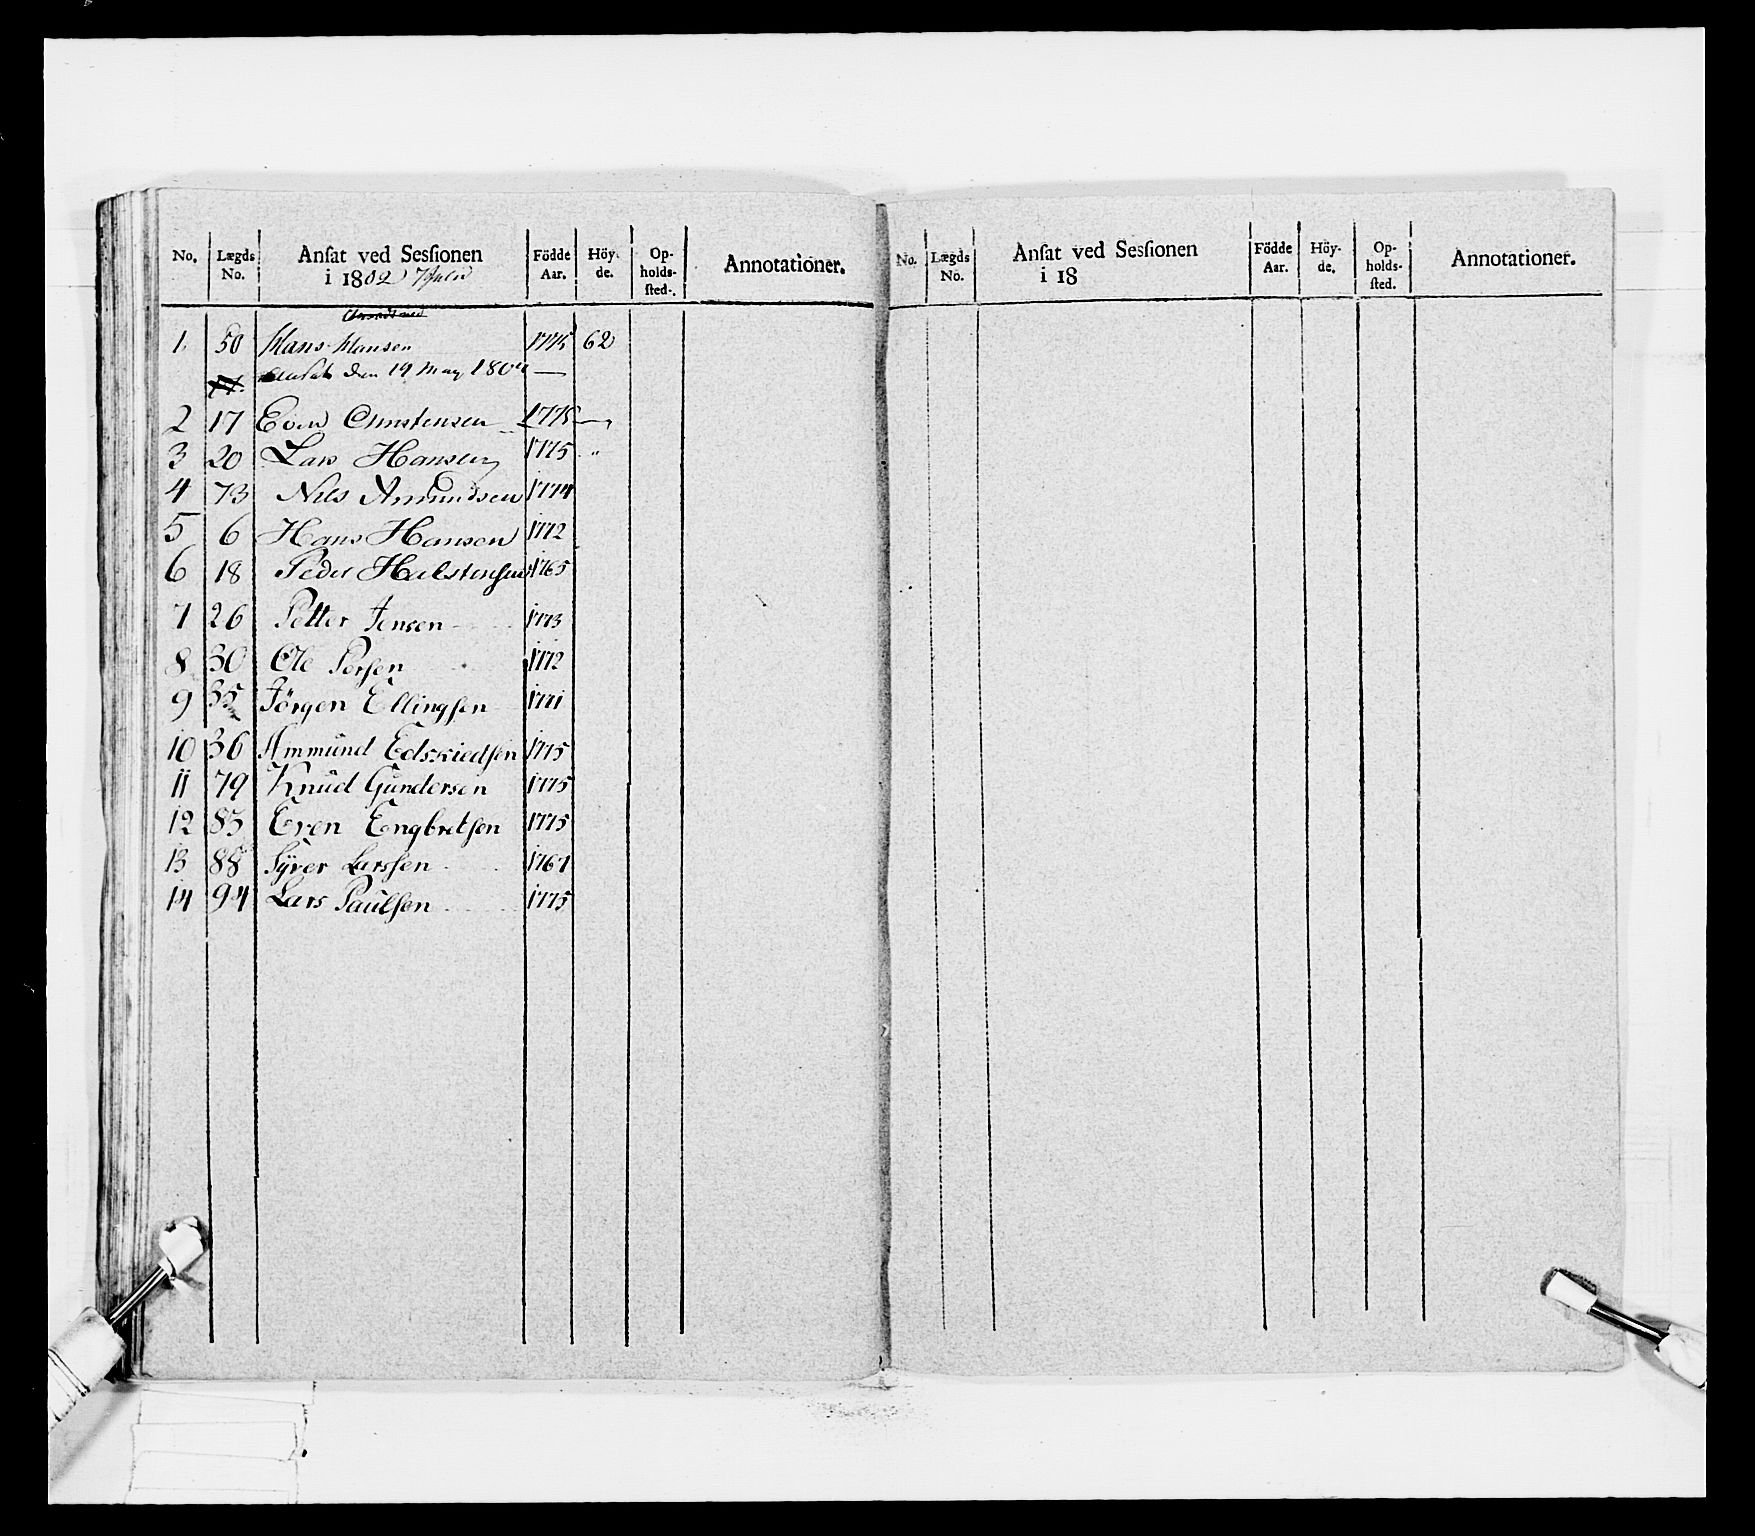 No. Lægds No. Anſat ved Sesſionen i 1802 7 Julii Födde Aar. Höyde. Opholds-sted. Annotationer.
1. 50 Hans Hansen 1775 62
Ansat den 19 May 180
2 17 Even Christensen 1775 —
3 20 Lars Hansen 1775 "
4 73 Nils Amundsen 1774
5 6 Hans Hansen 1772
6 18 Peder Halstensen 1765
7 26 Petter Jensen 1773
8 30 Ole Persen 1772
9 35 Jörgen Ellingsen 1771
10 36 Ammund 1775
11 79 Knud Gundersen 1775
12 85 Even Engbretsen 1775
13 88 Syver Larssen 1767
14 94 Lars Paulsen 1775
No. Lægds No. Anſat ved Sesſionen i 18 Födde Aar. Höy-de. Op-holds-sted. Annotationer.